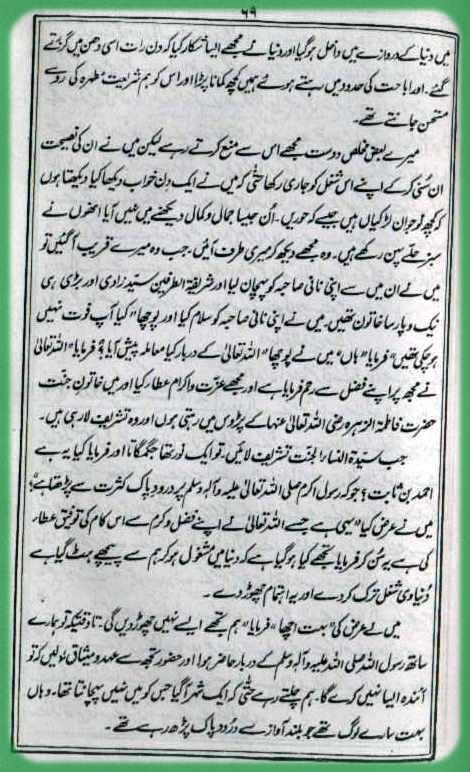 ۶۹
میں دنیا کے دروازے میں داخل ہوگیا اور دنیا نے مجھے ایسا شکار کیا کہ دن رات اسی دھن میں گزرتے
گئے۔ اور اباحت کی حدود میں رہتے ہوئے ہمیں کچھ کمانا پڑا اور اس کو ہم شریعت مطہرہ کی روسے
جانتے تھے۔
میرے بعض مخلص دوست مجھے اس سے منع کرتے رہے لیکن میں نے ان کی نصیحت
ان سُنی کر کے اپنے اس شغل کو جاری رکھا حتٰی کہ میں نے ایک دن خواب دیکھا کیا دیکھتا ہوں
کہ کچھ نوجوان لڑکیاں ہیں جیسے کہ حوریں۔ اُن جیسا جمال وکمال دیکھنے میں نہیں آیا انھوں نے
سبز حلّے پہن رکھے ہیں۔ وہ مجھے دیکھ کر میری طرف آئیں جب وہ میرے قریب آگئیں تو
میں نے ان میں سے اپنی نانی صاحبہ کو پہچان لیا اور شریفۃ الطرفین سیّد زادی اور بڑی ہی
نیک و پارسا خاتون تھیں۔ میں نے اپنی نانی صاحبہ کو سلام کیا اور پوچھا "کیا آپ فوت نہیں
ہوچکی تھیں" فرمایا "ہاں" میں نے پوچھا "اللہ تعالیٰ کے دربار کیا معاملہ پیش آیا؟ فرمایا "اللہ تعالیٰ
نے مجھ پر اپنے فضل سے رحم فرمایا ہے اور مجھے عزّت و اکرام عطا کیا اور میں خاتونِ جنّت
حضرت فاطمۃ الزہرہ رضی اللہ تعالیٰ عنہا کے پڑوس میں رہتی ہوں اور وہ تشریف لا رہی ہیں۔
جب سیّدۃ النساء الجنّت تشریف لائیں، تو ایک نور تھا جگمگاتا اور فرمایا کیا یہ ہے
احمد بن ثابت؟ جو کہ رسول اکرم صلی اللہ تعالیٰ علیہ وآلہٖ وسلم پر درود پاک کثرت سے پڑھتا ہے؟
میں نے عرض کیا "یہی ہے جسے اللہ تعالیٰ نے اپنے فضل و کرم سے اس کام کی توفیق عطا
کی ہے یہ سُن کر فرمایا تجھے کیا ہوگیا ہے کہ دنیا میں مشغول ہوکر ہم سے پیچھے ہٹ گیا ہے
دُنیاوی شغل ترک کر دے اور یہ اہتمام چھوڑ دے۔
میں نے عرض کی "بہت اچھا" فرمایا "ہم تجھے ایسے نہیں چھوڑ دیں گی۔ تاوقتیکہ تو ہمارے
ساتھ رسول اللہ صلی اللہ علیہ وآلہٖ وسلم کے دربار حاضر ہو اور حضور تجھ سے عہد و میثاق لیں کہ تو
آئندہ ایسا نہیں کرے گا۔ ہم چلتے رہے حتٰی کہ ایک شہر آگیا جس کو میں نہیں پہچانتا تھا۔ وہاں
بہت سارے لوگ تھے جو بلند آواز سے دُرود پاک پڑھ رہے تھے۔